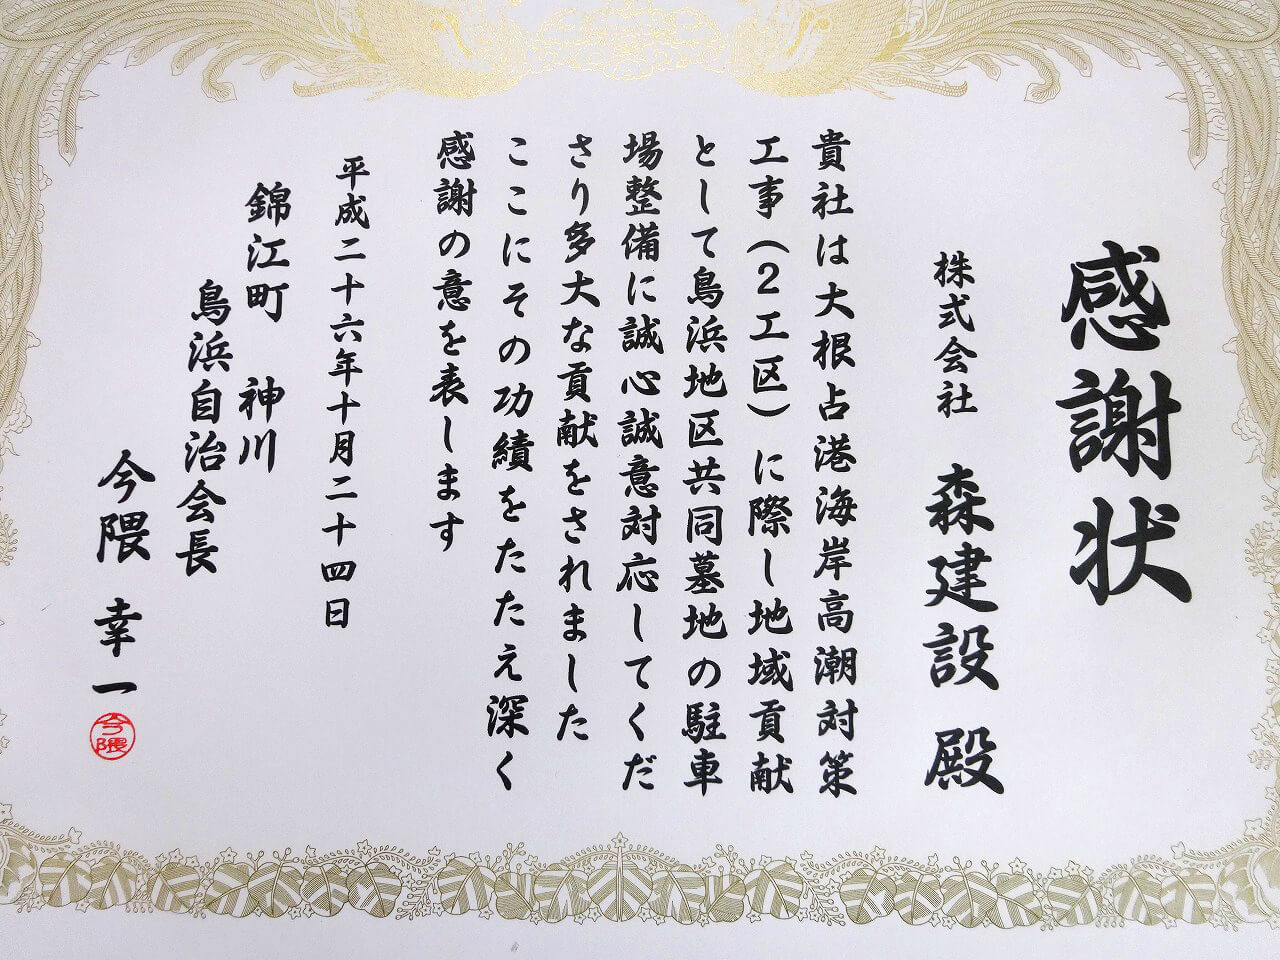 感謝状
株式会社 森建設 殿
貴社は大根占港海岸高潮対策
工事（２工区）に際し地域貢献
として鳥浜地区共同墓地の駐車
場整備に誠心誠意対応してくだ
さり多大な貢献をされました
ここにその功績をたたえ深く
感謝の意を表します
平成二十六年十月二十四日
錦江町 神川
鳥浜自治会長
今隈 幸一
今隈